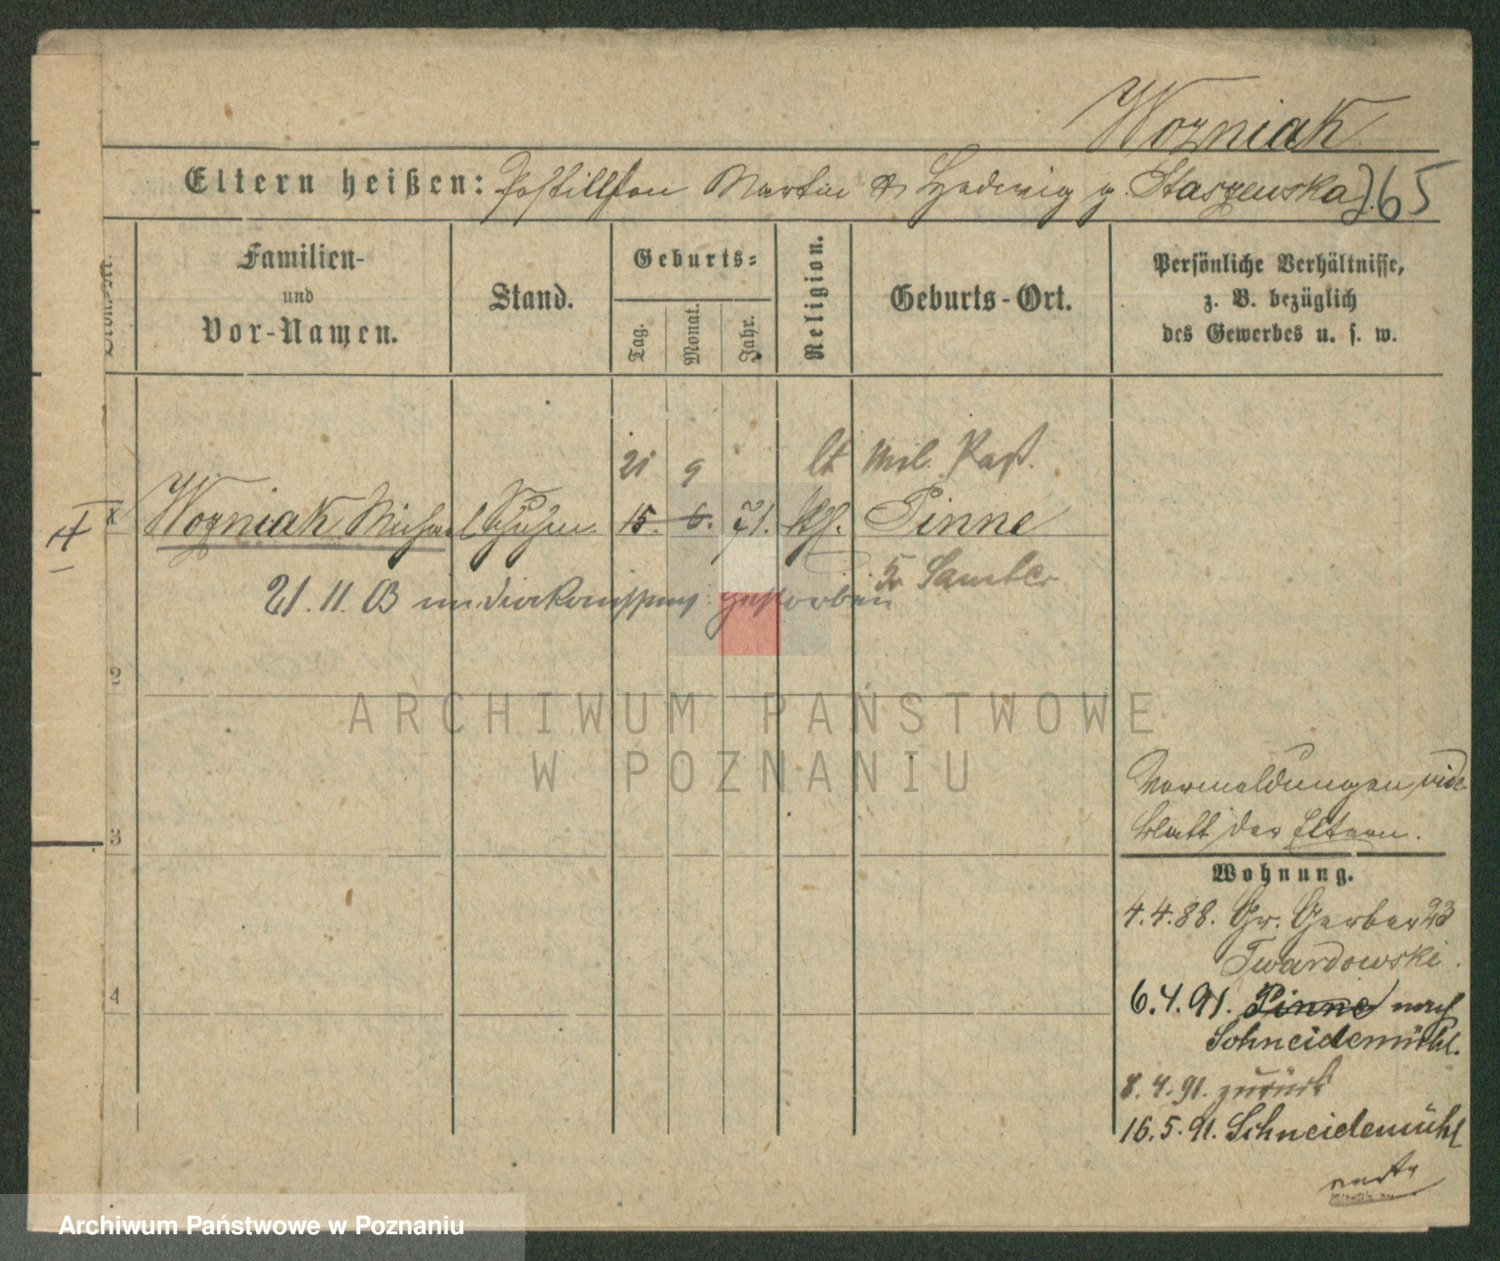 Wozniak
Eltern heißen: Postillion Martin & Hedwig g. Staszewska 265
Familien- und Vor-Namen.
Stand.
Geburts-
Tag.
Monat.
Jahr.
Religion.
Geburts-Ort.
Persönliche Verhältnisse,
z. B. bezüglich
des Gewerbes u. s. w.
21 9 lt Mil. Paß.
1 Wozniak Michael Schuhm. 15. 6. 71. kth. Pinne
Kr Samter
21. 11. 03 im Diakonissenh. gestorben
2
3
4
Vormeldungen vide
Blatt der Eltern.
Wohnung.
4.4.88. Gr. Gerber 23
Twardowski.
6.4.91. Pinne nach
Schneidemühl.
8.4.91. zurück
16.5.91. Schneidemühl
ARCHIWUM PAŃSTWOWE
W POZNANIU
Archiwum Państwowe w Poznaniu